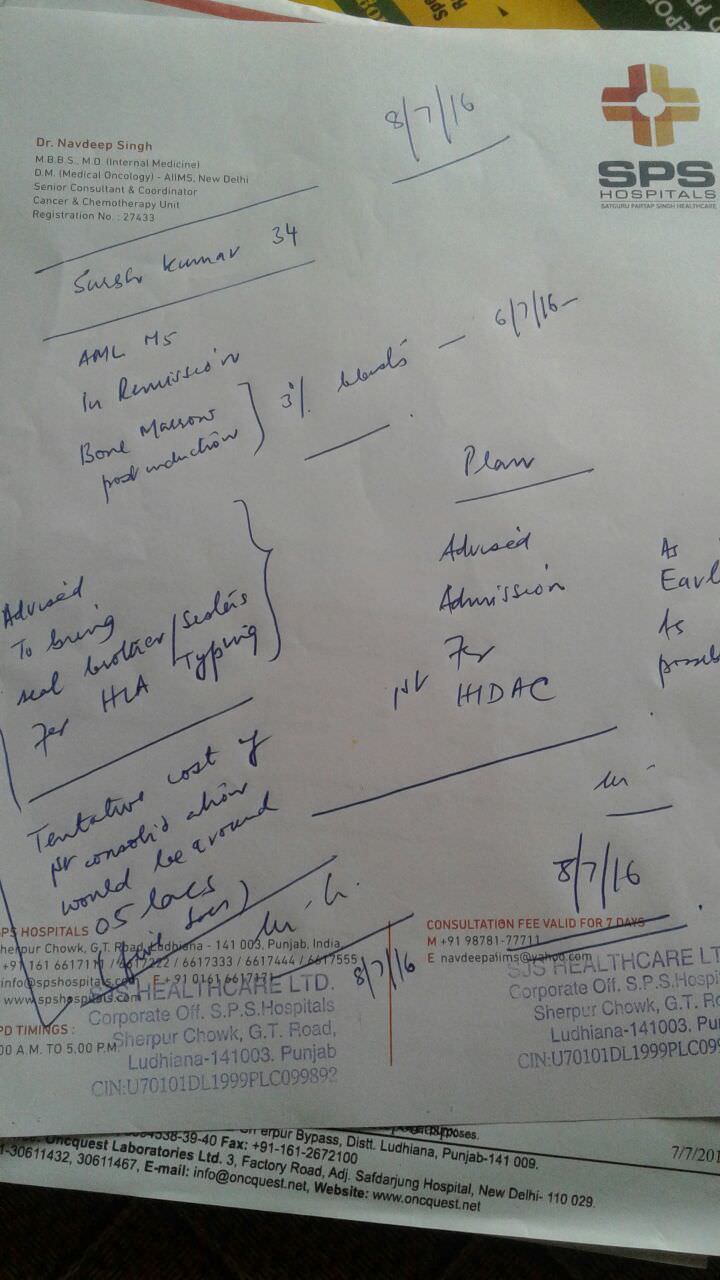 8/7/16
SPS
HOSPITALS
SATGURU PARTAP SINGH HEALTHCARE
Dr. Navdeep Singh
M.B.B.S., M.D. (Internal Medicine)
D.M. (Medical Oncology) - AIIMS, New Delhi
Senior Consultant & Coordinator
Cancer & Chemotherapy Unit
Registration No. : 27433
Kumar 34
AML M5
In Remission
Bone Marrow
post induction
3% blasts - 6/7/16-
Plan
Advised
Admission
For
1st HIDAC
As
Earl
As
possib
Advised
To bring
real brother/Sisters
For HLA Typing
Tentative cost of
1st consolidation
would be around
05 lacs
8/7/16
8/7/16
SPS HOSPITALS
Sherpur Chowk, G.T. Road, Ludhiana - 141 003, Punjab, India
6617222 / 6617333 / 6617444 / 6617555
OPD TIMINGS :
00 A.M. TO 5.00 P.M.
CONSULTATION FEE VALID FOR 7 DAYS
M +91 98781-77711
E navdeepaiims@yahoo.com
SJS HEALTHCARE LTD.
Corporate Off. S.P.S.Hospitals
Sherpur Chowk, G.T. Road,
Ludhiana-141003. Punjab
CIN:U70101DL1999PLC099892
SJS HEALTHCARE LT
Corporate Off. S.P.S.Hospi
Sherpur Chowk, G.T. R
Ludhiana-141003. Pu
CIN:U70101DL1999PLC099
38-39-40 Fax: +91-161-2672100
erpur Bypass, Distt. Ludhiana, Punjab-141 009.
7/7/201
Oncquest Laboratories Ltd. 3, Factory Road, Adj. Safdarjung Hospital, New Delhi- 110 029.
1-30611432, 30611467, E-mail: info@oncquest.net, Website: www.oncquest.net